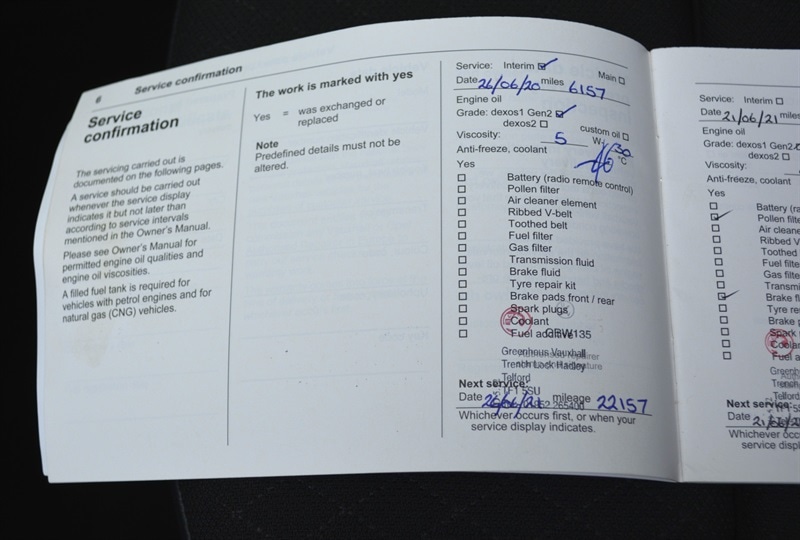 6
Service confirmation
Service
confirmation
The servicing carried out is
documented on the following pages.
A service should be carried out
whenever the service display
indicates it but not later than
according to service intervals
mentioned in the Owner's Manual.
Please see Owner's Manual for
permitted engine oil qualities and
engine oil viscosities.
A filled fuel tank is required for
vehicles with petrol engines and for
natural gas (CNG) vehicles.
The work is marked with yes
Yes = was exchanged or
replaced
Note
Predefined details must not be
altered.
Service: Interim Main
Date 26/06/20 miles 6157
Engine oil
Grade: dexos1 Gen2
dexos2 custom oil
Viscosity: 5 W/ 30
Anti-freeze, coolant 40 °C
Yes
Battery (radio remote control)
Pollen filter
Air cleaner element
Ribbed V-belt
Toothed belt
Fuel filter
Gas filter
Transmission fluid
Brake fluid
Tyre repair kit
Brake pads front / rear
Spark plugs
Coolant
Fuel additive GBW135
Greenhous Vauxhall
Trench Lock Hadley
Telford
TF1 5SU
Next service:
Date 26/06/21 mileage 22157
Whichever occurs first, or when your
service display indicates.
Service: Interim
Date 21/06/21 miles
Engine oil
Grade: dexos1 Gen2
dexos2
Viscosity:
Anti-freeze, coolant
Yes
Battery (ra
Pollen filte
Air cleane
Ribbed V
Toothed
Fuel filte
Gas filte
Transmi
Brake fl
Tyre re
Brake p
Spark
Coolan
Fuel a
Greenh
Trench
Telford
Next service:
Date
Whichever occ
service displ